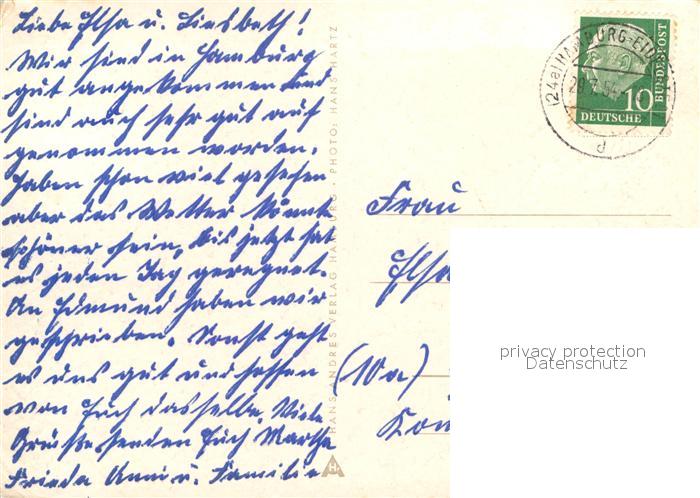 Liebe Elsa u. Liesbeth!
Wir sind in Hamburg
gut angekommen und
sind auch sehr gut auf
genommen worden.
Haben schon viel gesehen
aber das Wetter könnte
schöner sein, bis jetzt hat
es jeden Tag geregnet.
An Edmund haben wir
geschrieben. Sonst geht
es uns gut und hoffen
von Euch dasselbe. Viele
Grüße senden Euch Martha
Frieda Anni u. Familie
HANS ANDRES VERLAG HAMBURG · PHOTO: HANS HARTZ
(24a) HAMBURG-
DEUTSCHE
BUNDESPOST
10
d
Frau
Elsa
(10a)
privacy protection
Datenschutz